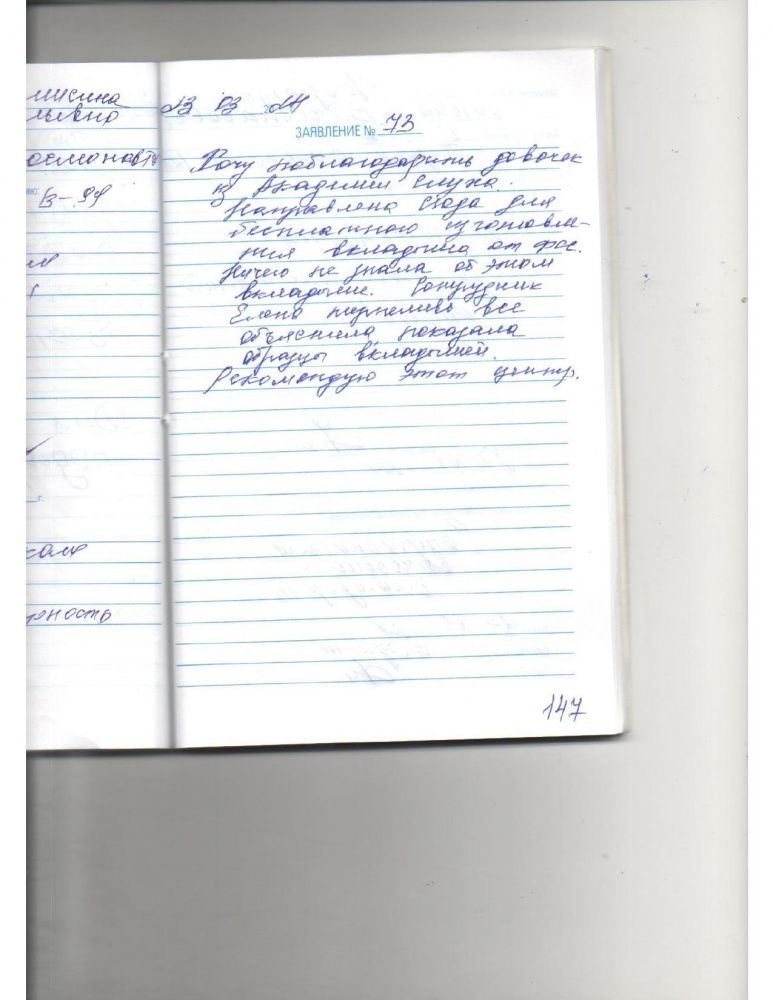 мисина
льевна
осмонавт
В-99
23 03 2024
ЗАЯВЛЕНИЕ № 73
Хочу поблагодарить девочек
из Академии слуха.
Направлена сюда для
бесплатного изготовле-
ния вкладыша от фсс.
Ничего не знала об этом
вкладыше. Сотрудник
Елена терпеливо все
объяснила показала
образцы вкладышей.
Рекомендую этот центр.
рность
147